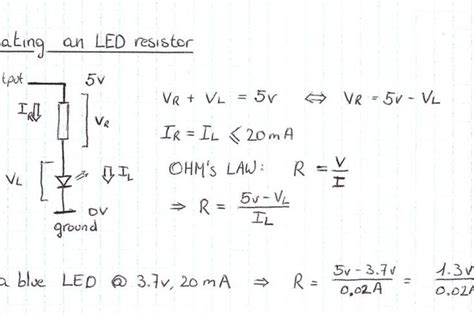 ating an LED resistor
tput 5v
I_R V_R V_R + V_L = 5v ⇔ V_R = 5v - V_L
I_R = I_L ⩽ 20mA
V_L I_L OHM's LAW: R = V/I
0v ⇒ R = (5v - V_L)/I_L
ground
a blue LED @ 3.7v, 20mA ⇒ R = (5v - 3.7v)/0.02A = 1.3v/0.02A